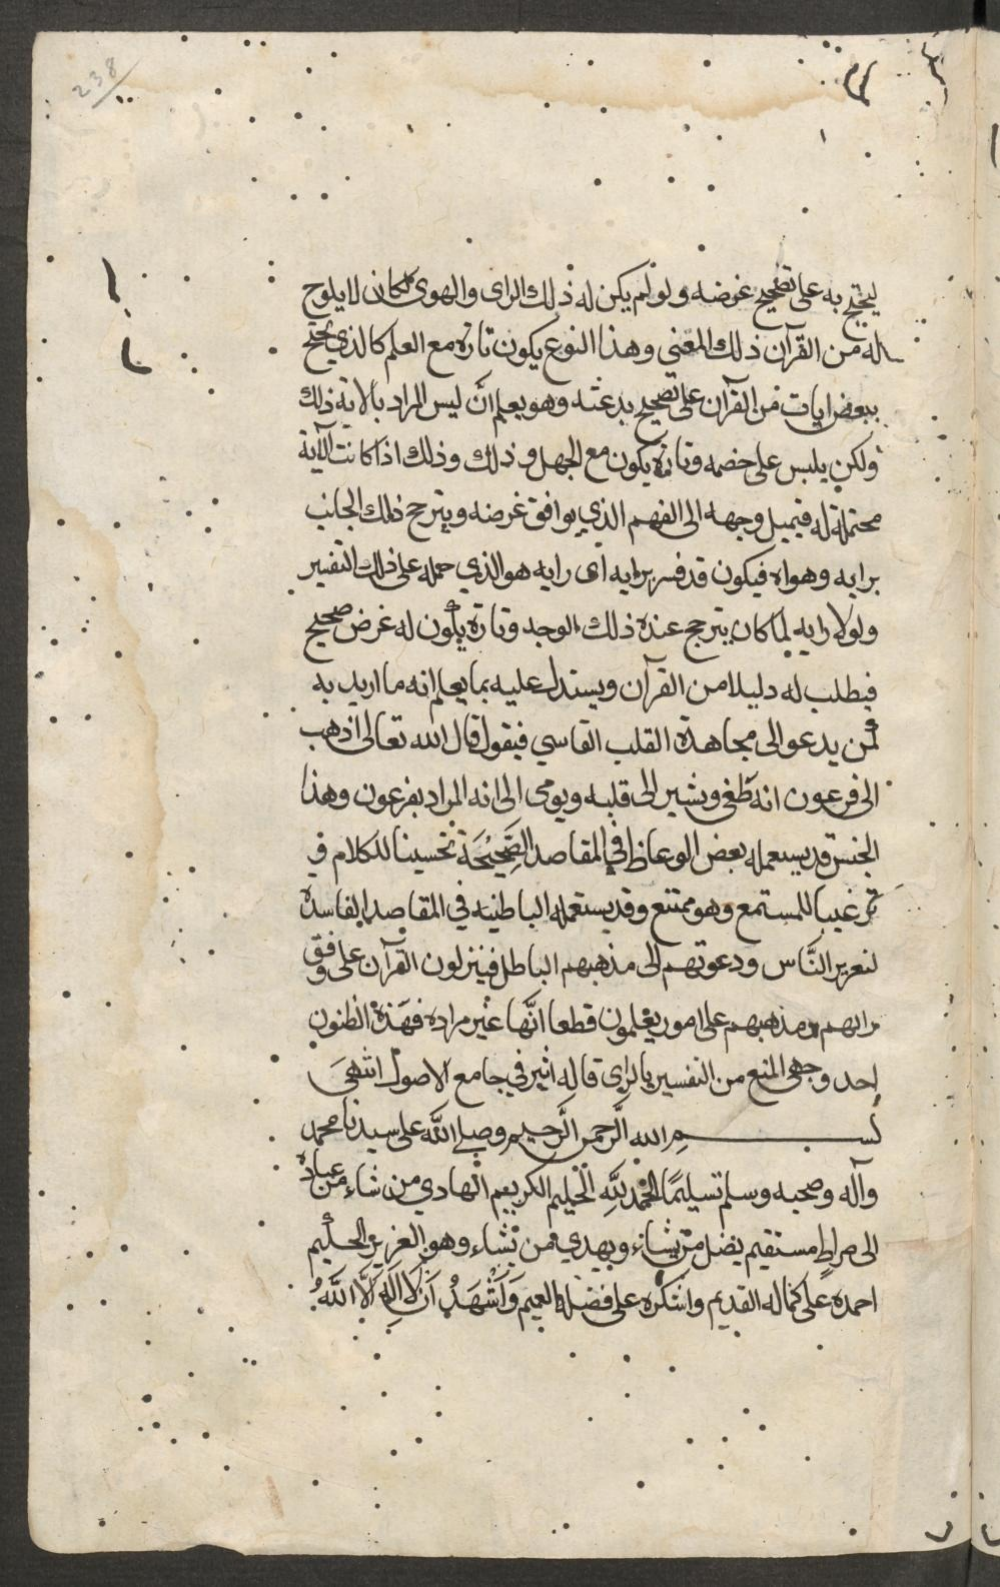 238
ليحتج به على تصحيح غرضه ولو لم يكن له ذلك الراى والهوى لكان لا يلوح
له من القرآن ذلك المعنى وهذا النوع يكون تارة مع العلم كالذي يحتج
ببعض ايات من القرآن على تصحيح بدعته وهو يعلم ان ليس المراد بالاية ذلك
ولكن يلبس على خصمه وتارة يكون مع الجهل وذلك وذلك اذا كانت الآية
محتملة له فيميل وجهه الى الفهم الذي يوافق غرضه ويترجح ذلك الجانب
برايه وهواه فيكون قد فسر برايه اى رايه هو الذي حمله على ذلك التفسير
ولولا رايه لما كان يترجح عنده ذلك الوجه وتارة يكون له غرض صحيح
فيطلب له دليلا من القرآن ويستدل عليه بما يعلم انه ما اريد به
كمن يدعو الى مجاهدة القلب القاسي فيقول قال الله تعالى اذهب
الى فرعون انه طغى ويشير الى قلبه ويومى الى انه المراد بفرعون وهذا
الجنس قد يستعمله بعض الوعاظ في المقاصد الصَّحِيْحَة تحسينا للكلام في
ترغيبا للمستمع وهو ممتنع وقد يستعمله الباطنيه في المقاصد الفاسدة
لتغرير النَّاس ودعوتهم الى مذهبهم الباطل فينزلون القرآن على وفق
رايهم ومذهبهم على امور يعلمون قطعا انَّها غير مراده فهَذهْ الظنون
احد وجهى المنع من التفسير بالراى قاله اثير في جامع الاصول انتهىَ
بسم الله الرَّحمن الرَّحيم وصلى اللَّه على سيدنا محمد
وآله وصحبه وسلم تسليمًا الحْمد للَّهِ الْحليم الكريم الْهادي من شاء من عباده
الى صراطٍ مستقيم يضل من يشاء ويهدي من يْشاء وهو العزيز الحكيم
احمده على كماله القديم واشكره على فضله العميم وَاَشْهَدُ اَنْ لَا اِلَهَ اِلَّا اللَّهُ